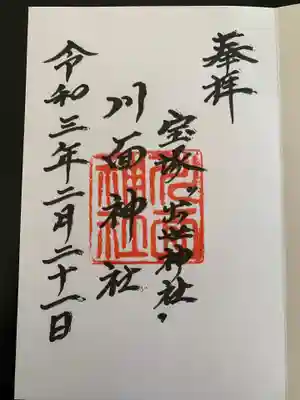 奉拝
宝塚〝出世神社〟
川面神社
令和三年二月二十一日
川面神社